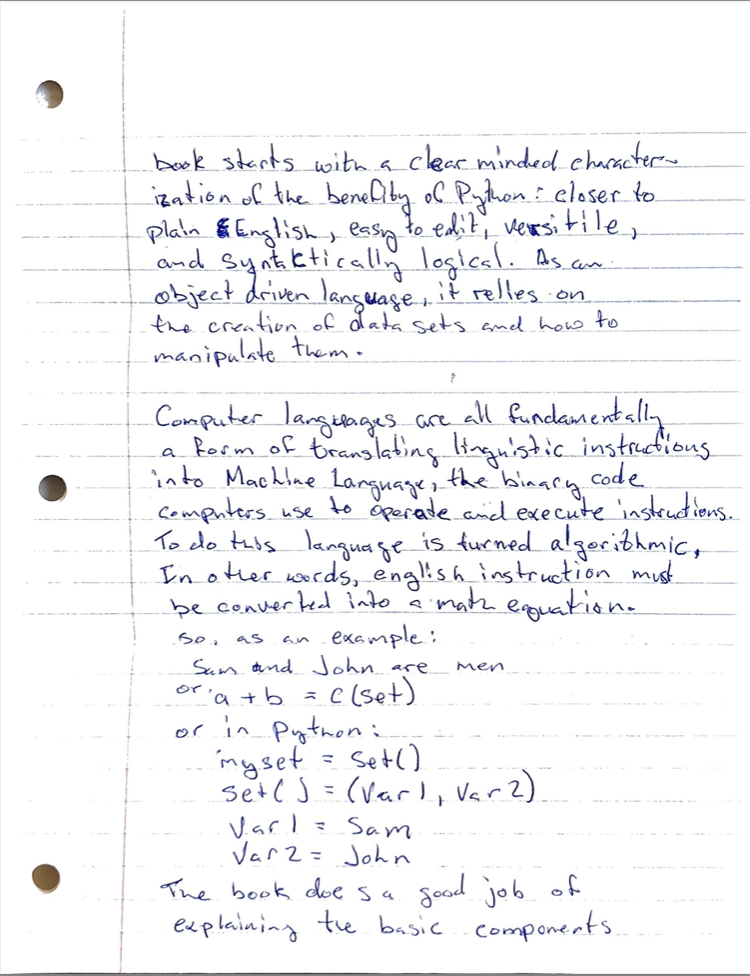 book starts with a clear minded character-
ization of the benefity of Python: closer to
plain English, easy to edit, versitile,
and syntaktically logical. As an
object driven language, it relies on
the creation of data sets and how to
manipulate them.
Computer languages are all fundamentally
a form of translating linguistic instructions
into Machine Language, the binary code
computers use to operate and execute instructions.
To do this language is turned algorithmic,
In other words, english instruction must
be converted into a math equation.
so, as an example:
Sam and John are men
or a + b = C (set)
or in Python:
myset = Set()
set() = (Var1, Var2)
Var1 = Sam
Var2 = John
The book does a good job of
explaining the basic components